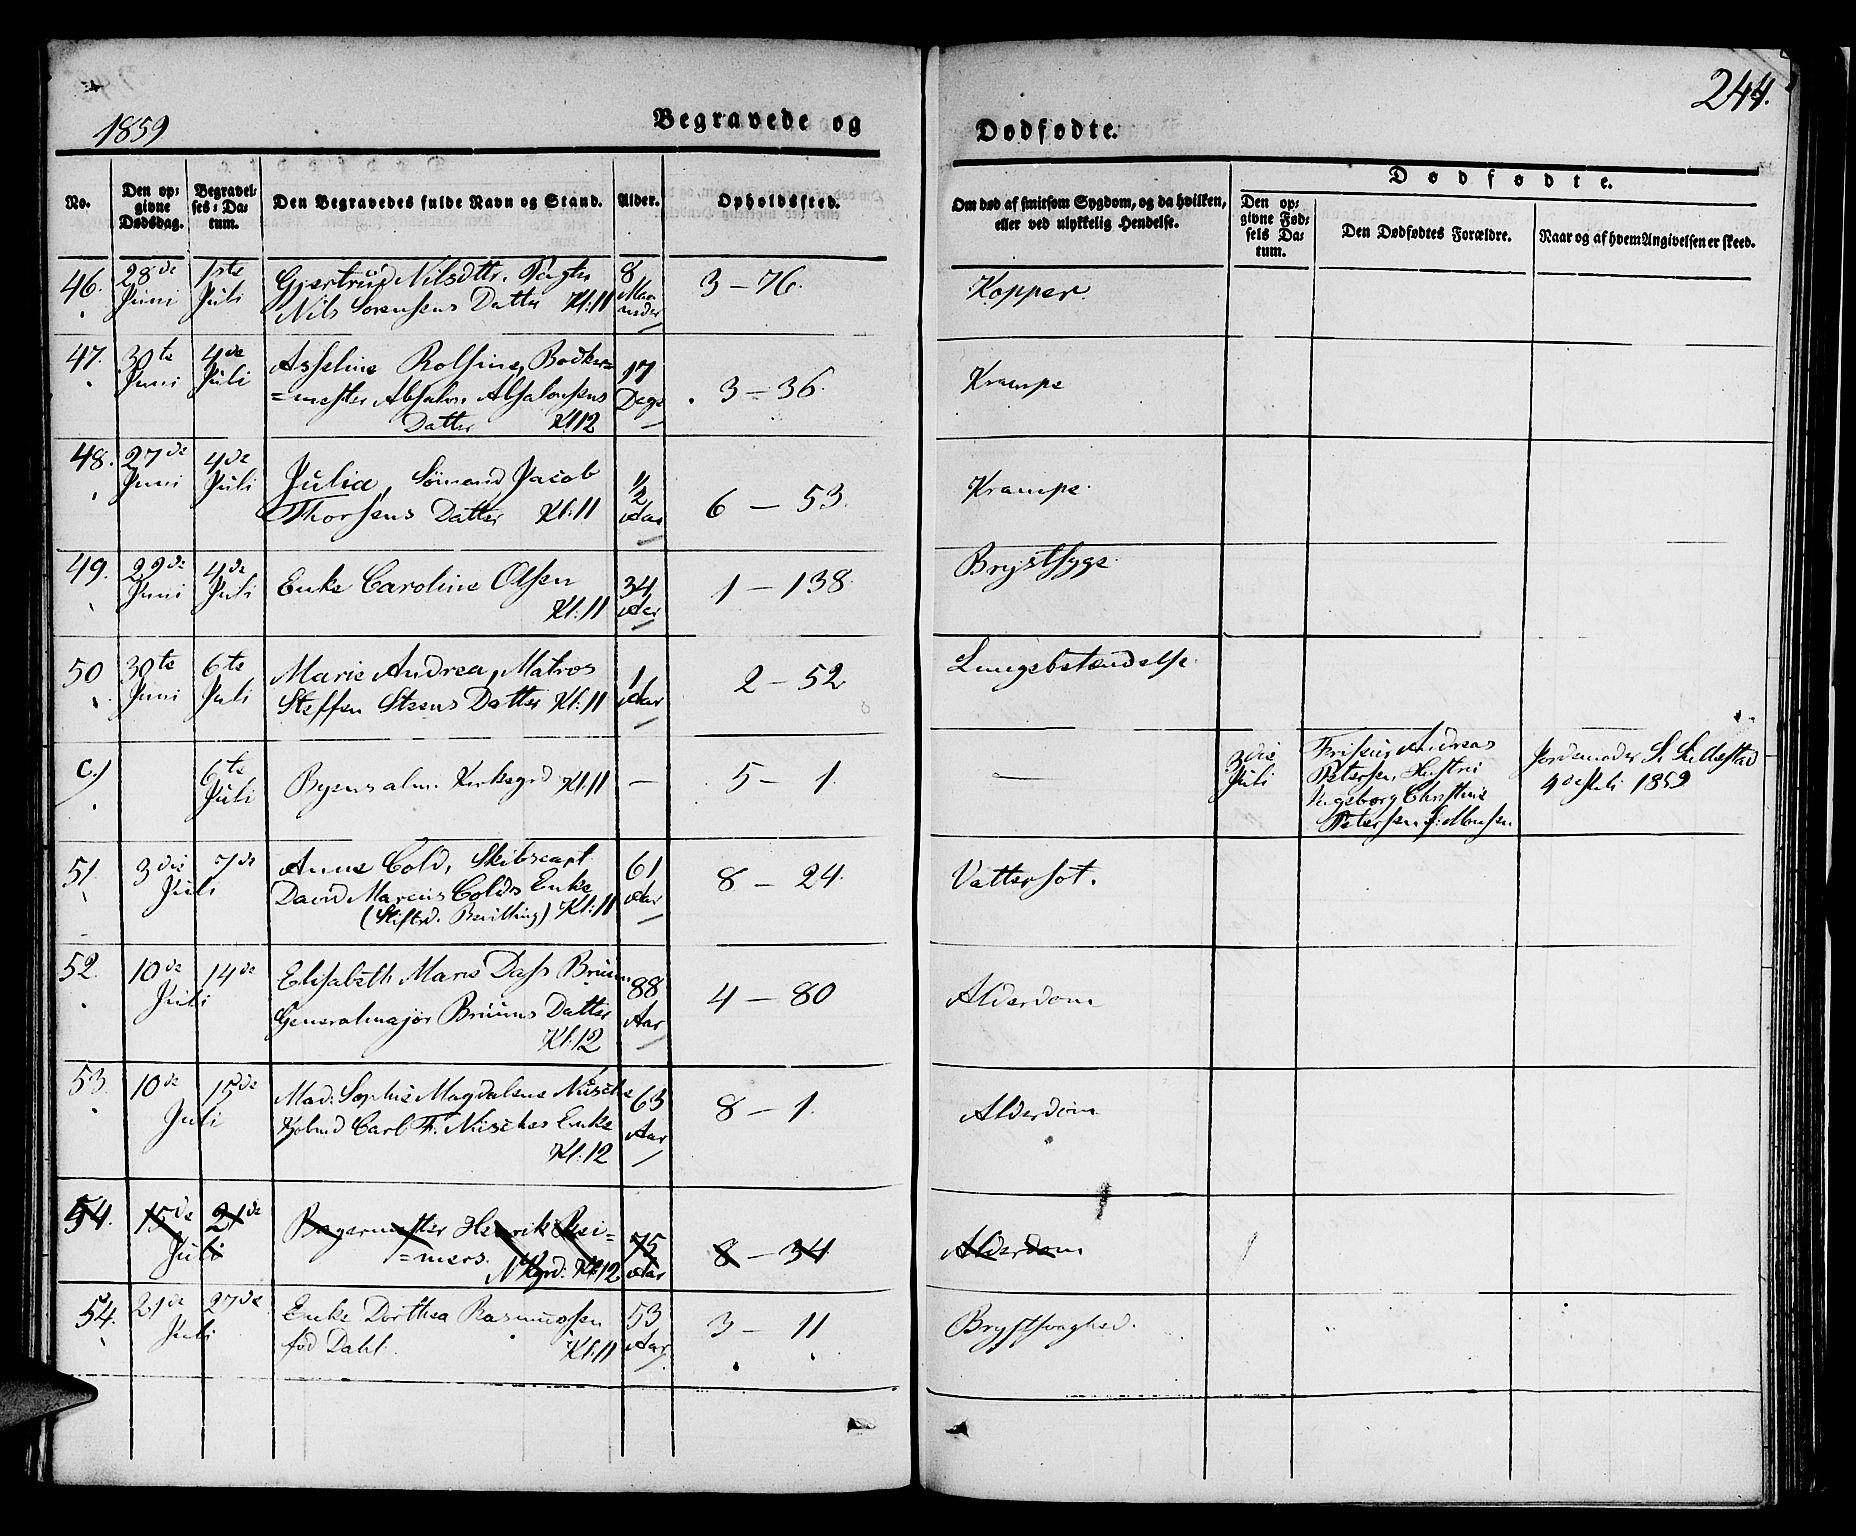 1859
Begravede og
Dødfødte.
244.
No.
Den op-
givne
Dødsdag.
Begravel-
ses-Da-
tum.
Den Begravedes fulde Navn og Stand.
Alder.
Opholdssted.
Om død af smitsom Sygdom, og da hvilken,
eller ved ulykkelig Hendelse.
Dødfødte.
Den op-
givne Fød-
sels Da-
tum.
Den Dødfødtes Forældre.
Naar og af hvem Angivelsen er skeed.
46. 28de Juni 1ste Juli Gjertrud Nilsdttr.
Nils Sørensens Datter Kl: 11
8 Maaneder
3 - 76.
Kopper.
47. 30te Juni 4de Juli Asseline Rolfine, Bødker=
=mester Absalon Absalonsens
Datter Kl 12
17 Dage
3 - 36.
Krampe
48. 27de Juni 4de Juli Julia, Sømand Jacob
Thorsens Datter Kl: 11
1/2 Aar
6 - 53.
Krampe.
49. 29de Juni 4de Juli Enke Caroline Olsen
Kl: 11
34 Aar
1 - 138.
Brystsyge.
50 30te Juni 6te Juli Marie Andrea, Matros
Steffen Steens Datter Kl: 11
1 Aar
2 - 52
Lungebetændelse.
C.) 6te Juli Byens alm. Kirkegrd Kl: 11
—
5 - 1.
—
3die Juli
Andreas
Petersen, Hustru
Ingeborg Christine
Petersen f: Monsen
Jordemoder
4de Juli 1859
51. 3die Juli 7de Anne Cold, Skibscapt.
David Marcus Colds Enke
(Stiftsd. Bevilling) Kl: 11
61 Aar
8 - 24.
Vattersot.
52. 10de Juli 14de Elisabeth Marie Dass Bruun
Generalmajor Bruuns Datter
Kl: 12
88 Aar
4 - 80
Alderdom
53. 10de Juli 15de Mad. Sophie Magdalene
Carl F. Enke
Kl: 12
63 Aar
8 - 1.
Alderdom
54. 15de Juli 21de Bagermester Henrik Rei=
=mers. N Kgrd: Kl 12
75 Aar
8 - 34
Alderdom
54. 21de Juli 27de Enke Dorthea Rasmussen
fød Dahl. Kl: 11
53 Aar
3 - 11
Brystsvaghed.